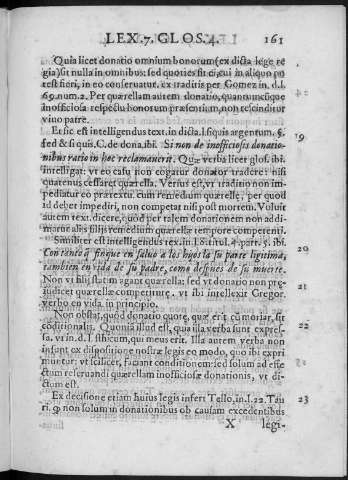 LEX.7. GLOS.4. 161
Quia licet donatio omnium bonorum (ex dicta lege re
gia) sit nulla in omnibus: sed quoties sit ei, cui in aliquo po
test fieri, in eo conseruatur. ex traditis per Gomez in. d.l.
69. num. 2. Per quærellam autem donatio, quantumcũque
inofficiosa respectu bonorum præsentium, non rescinditur
viuo patre.
Et sic est intelligendus text. in dicta. l. si quis argentum. §.
sed & si quis, C. de dona. ibi. Si non de inofficiosis donatio- 19
nibus ratio in hoc reclamauerit. Quæ verba licet glos. ibi.
intelligat: vt eo casu non cogatur donator tradere: nisi
quatenus cessaret quærella. Verius est, vt traditio non im
pediatur eo prætextu. cum remedium quærellę, per quod
id debet impediri, non competat nisi post mortem. Voluit
autem text. dicere, quòd per talem donationem non adi
matur alijs filijs remedium quærellæ tempore competenti.
Similiter est intelligendus tex. in. l. 8. titul. 4. part. 5. ibi. 20
Con tanto q̃ finque en saluo a los hijos la su parte ligitima,
tambien en vida de su padre, como despues de su muerte.
Non vt filij statim agant quærella: sed vt donatio non præ 21
iudicet quærellæ competituræ. vt ibi intellexit Gregor.
verbo en vida. in principio.
Non obstat, quòd donatio quote, quæ erit cũ moriar, sit 22
conditionalis. Quoniã illud est, qua illa verba sunt expres-
sa. vt in. d. l. sthicum, qui meus erit. Illa autem verba non
insunt ex dispositione nostræ legis eo modo, quo ibi expri
muntur: vt scilicet, faciant conditionem: sed solum ad effe
ctum reseruandi quærellam inofficiosæ donationis, vt di-
ctum est.
Ex decisione etiam huius legis infert Tello, in. l. 22. Tau 23
ri. 9. non solum in donationibus ob causam excedentibus
X legi-